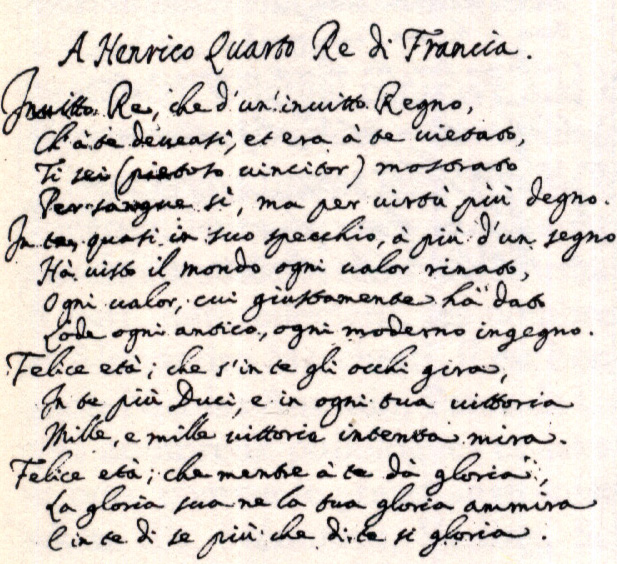 A Henrico Quarto Re di Francia.
Invitto Re, che d'un' invitto Regno,
Ch'à te deveasi, et era à te vietato,
Ti sei (pietoso vincitor) mostrato
Per sangue sì, ma per virtù più degno.
In te, quasi in suo specchio, à più d'un segno
Hà visto il mondo ogni valor rinato,
Ogni valor, cui giustamente hà dato
Lode ogni antico, ogni moderno ingegno.
Felice età; che s'in te gli occhi gira,
In te più Duci, e in ogni tua vittoria
Mille, e mille vittorie intenta mira.
Felice età; che mentre à te dà gloria,
La gloria sua ne la tua gloria ammira
E in te di se più che di te si gloria.